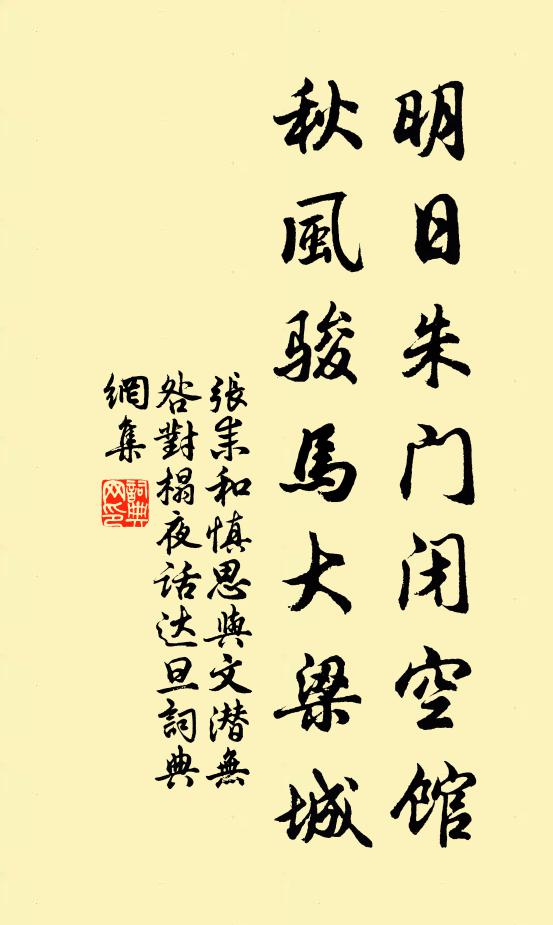 明日朱门闭空馆
秋風骏馬大梁城
張耒和慎思與文潜無
咎對榻夜话达旦詞典
網集
詞典
网印